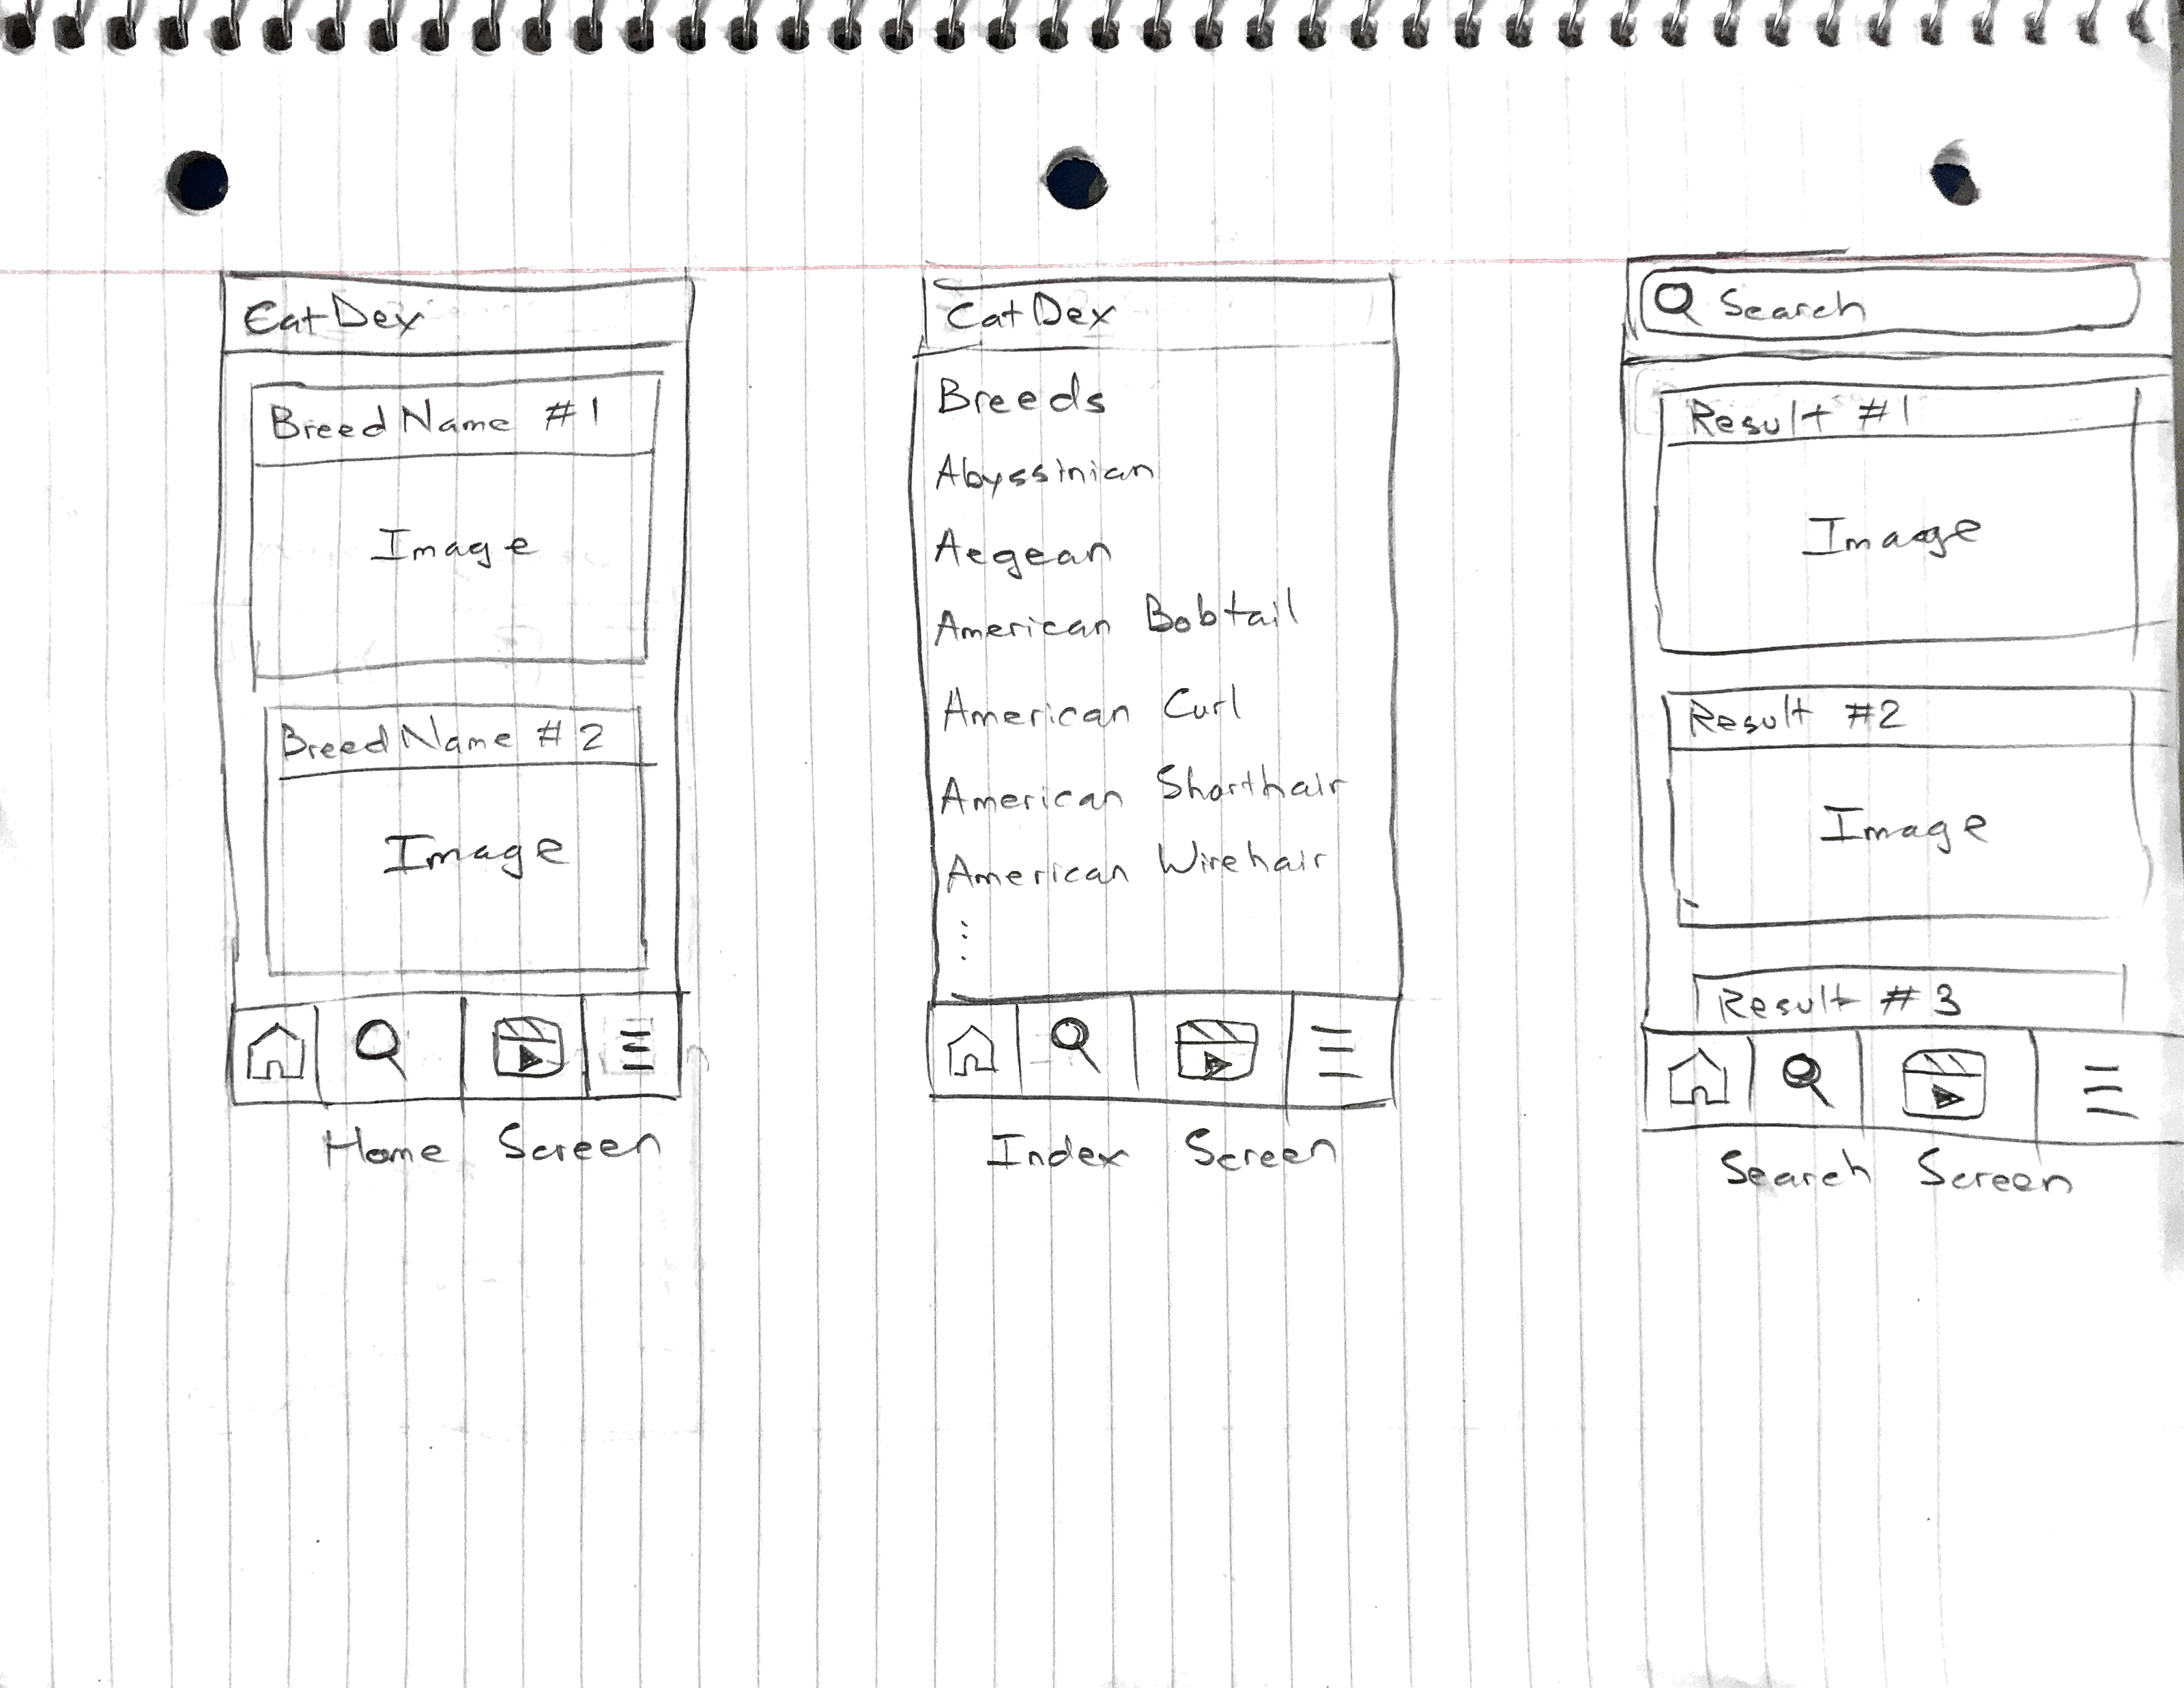 CatDex
Breed Name #1
Image
Breed Name #2
Image
Home Screen
CatDex
Breeds
Abyssinian
Aegean
American Bobtail
American Curl
American Shorthair
American Wirehair
⋮
Index Screen
Search
Result #1
Image
Result #2
Image
Result #3
Search Screen